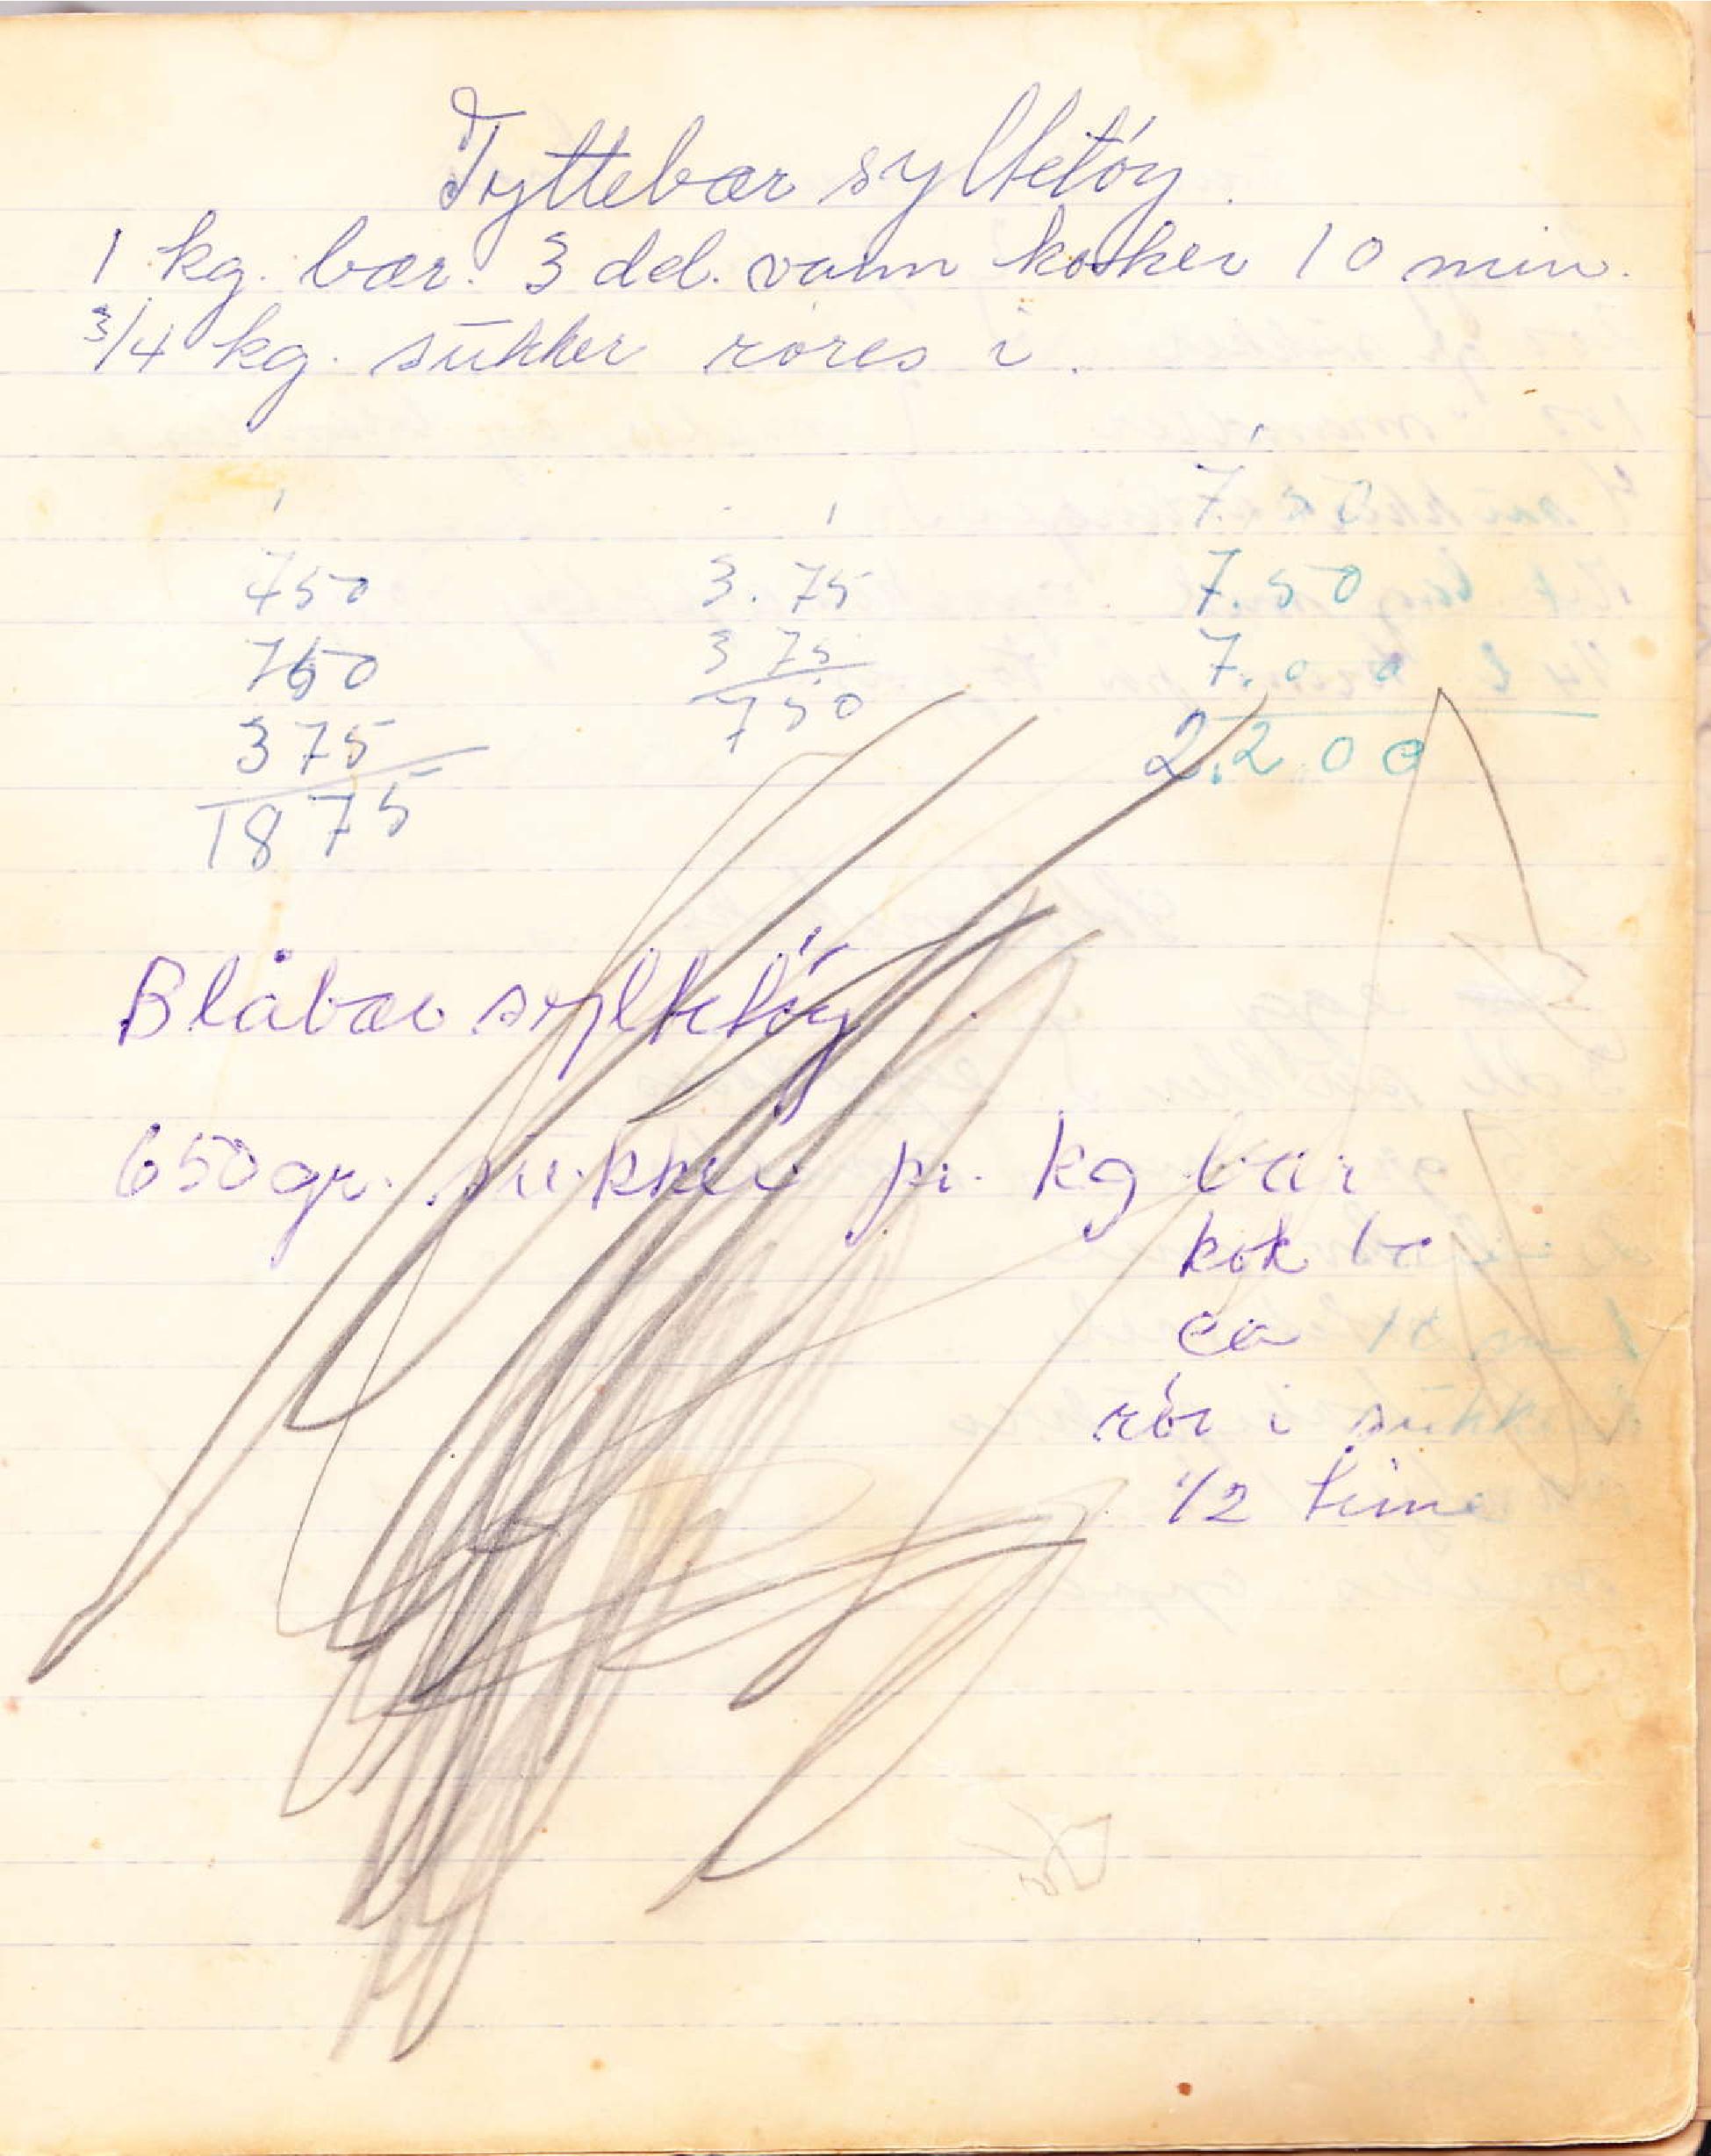 Tyttebær syltetóy.
1 kg. bær. 3 del. vann koker 10 min.
3/4 kg. sukker róres i.
750
750
375
1875
3.75
375
750
7.50
7.50
7.00
2.200
Blåbær syltetóy
650gr. sukker pr. kg bær
kok
ca 10
rór i sukk
1/2 time